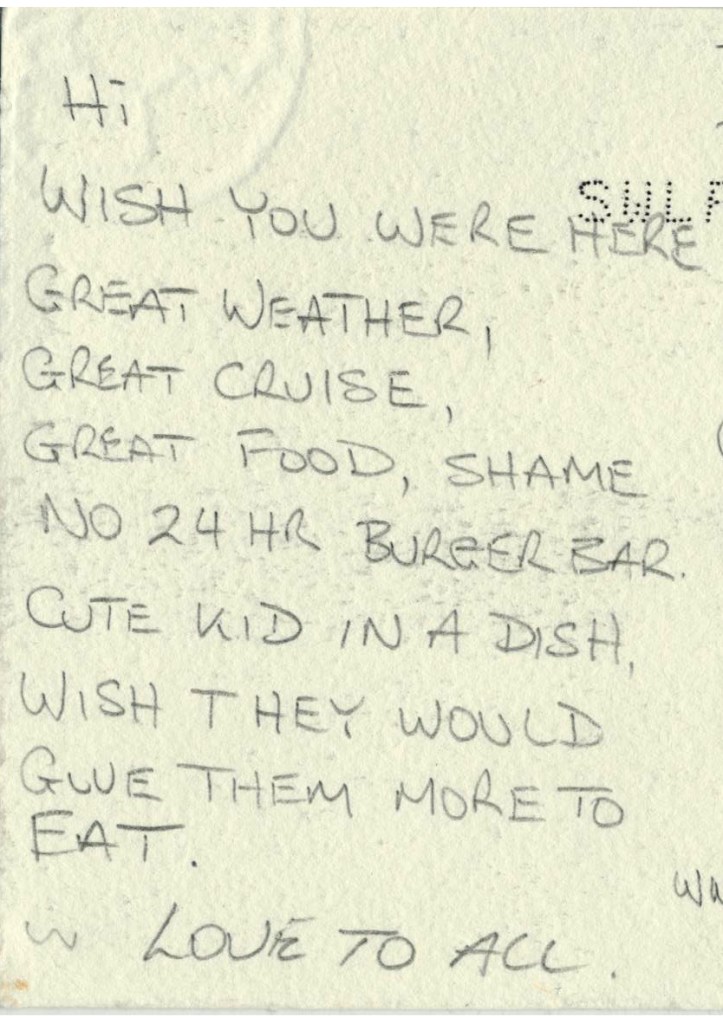 Hi
WISH YOU WERE HERE
GREAT WEATHER,
GREAT CRUISE,
GREAT FOOD, SHAME
NO 24 HR BURGER BAR.
CUTE KID IN A DISH,
WISH THEY WOULD
GIVE THEM MORE TO
EAT.
LOVE TO ALL.